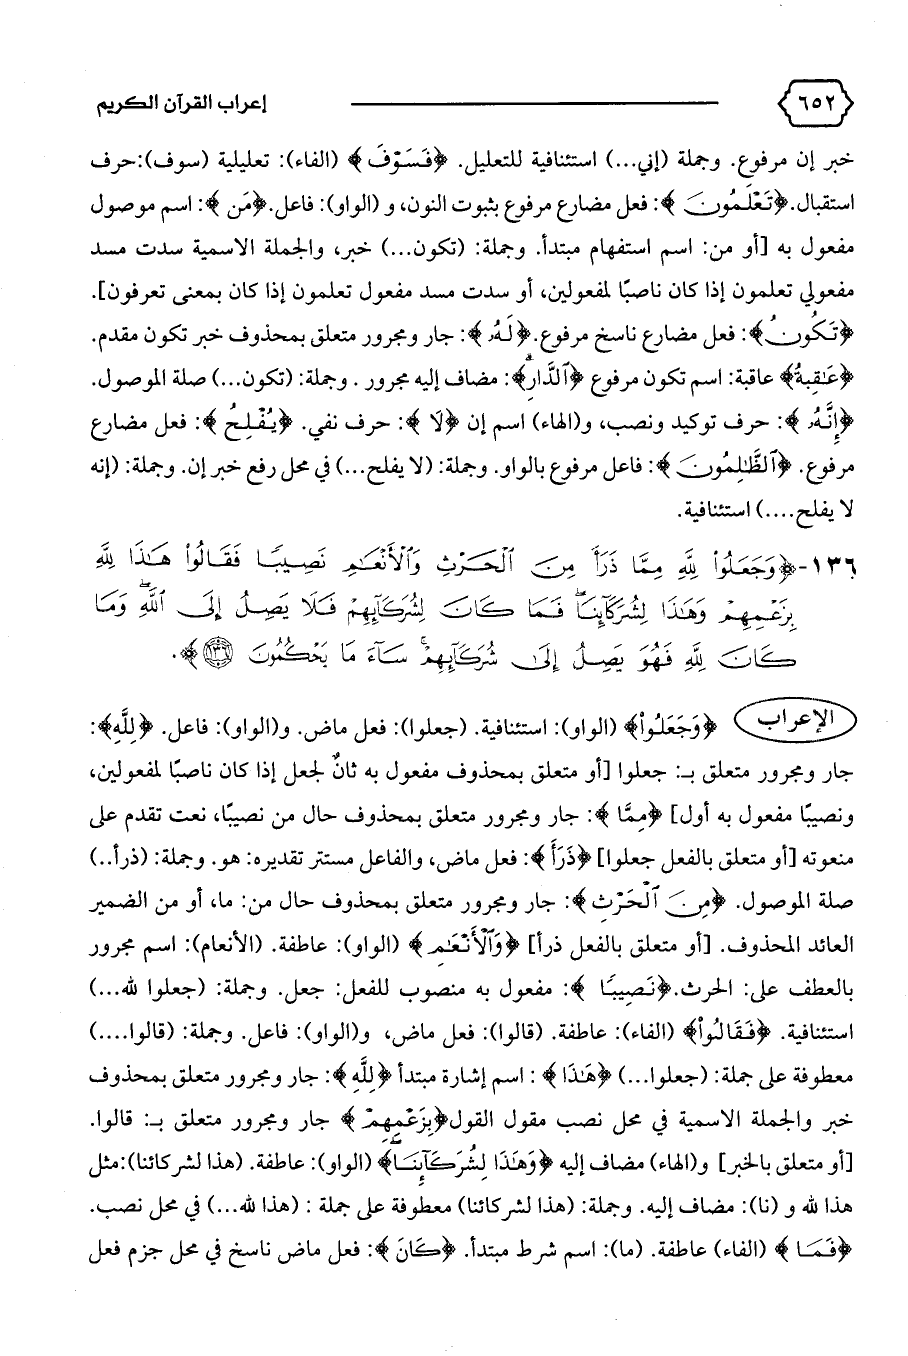 ٦٥٢ إعراب القرآن الكريم
خبر إن مرفوع. وجملة (إني...) استئنافية للتعليل. ﴿فَسَوْفَ﴾ (الفاء): تعليلية (سوف):حرف
استقبال.﴿تَعْلَمُونَ﴾: فعل مضارع مرفوع بثبوت النون، و (الواو): فاعل.﴿مَن﴾: اسم موصول
مفعول به [أو من: اسم استفهام مبتدأ. وجملة: (تكون...) خبر، والجملة الاسمية سدت مسد
مفعولي تعلمون إذا كان ناصبًا لمفعولين، أو سدت مسد مفعول تعلمون إذا كان بمعنى تعرفون].
﴿تَكُونُ﴾: فعل مضارع ناسخ مرفوع.﴿لَهُۥ﴾: جار ومجرور متعلق بمحذوف خبر تكون مقدم.
﴿عَـٰقِبَةُ﴾ عاقبة: اسم تكون مرفوع ﴿ٱلدَّارِۚ﴾: مضاف إليه مجرور . وجملة: (تكون...) صلة الموصول.
﴿إِنَّهُۥ﴾: حرف توكيد ونصب، و(الهاء) اسم إن ﴿لَا﴾: حرف نفي. ﴿يُفْلِحُ﴾: فعل مضارع
مرفوع. ﴿ٱلظَّـٰلِمُونَ﴾: فاعل مرفوع بالواو. وجملة: (لا يفلح...) في محل رفع خبر إن. وجملة: (إنه
لا يفلح....) استئنافية.
١٣٦-﴿وَجَعَلُوا۟ لِلَّهِ مِمَّا ذَرَأَ مِنَ ٱلْحَرْثِ وَٱلْأَنْعَـٰمِ نَصِيبًا فَقَالُوا۟ هَـٰذَا لِلَّهِ
بِزَعْمِهِمْ وَهَـٰذَا لِشُرَكَآئِنَا ۖ فَمَا كَانَ لِشُرَكَآئِهِمْ فَلَا يَصِلُ إِلَى ٱللَّهِ ۖ وَمَا
كَانَ لِلَّهِ فَهُوَ يَصِلُ إِلَىٰ شُرَكَآئِهِمْ ۗ سَآءَ مَا يَحْكُمُونَ ۝١٣٦﴾.
الإعراب ﴿وَجَعَلُوا۟﴾ (الواو): استئنافية. (جعلوا): فعل ماض. و(الواو): فاعل. ﴿لِلَّهِ﴾:
جار ومجرور متعلق بـ: جعلوا [أو متعلق بمحذوف مفعول به ثانٌ لجعل إذا كان ناصبًا لمفعولين،
ونصيبًا مفعول به أول] ﴿مِمَّا﴾: جار ومجرور متعلق بمحذوف حال من نصيبًا، نعت تقدم على
منعوته [أو متعلق بالفعل جعلوا] ﴿ذَرَأَ﴾: فعل ماض، والفاعل مستتر تقديره: هو. وجملة: (ذرأ..)
صلة الموصول. ﴿مِنَ ٱلْحَرْثِ﴾: جار ومجرور متعلق بمحذوف حال من: ما، أو من الضمير
العائد المحذوف. [أو متعلق بالفعل ذرأ] ﴿وَٱلْأَنْعَـٰمِ﴾ (الواو): عاطفة. (الأنعام): اسم مجرور
بالعطف على: الحرث.﴿نَصِيبًا﴾: مفعول به منصوب للفعل: جعل. وجملة: (جعلوا لله...)
استئنافية. ﴿فَقَالُوا۟﴾ (الفاء): عاطفة. (قالوا): فعل ماض، و(الواو): فاعل. وجملة: (قالوا....)
معطوفة على جملة: (جعلوا...) ﴿هَـٰذَا﴾ : اسم إشارة مبتدأ ﴿لِلَّهِ﴾: جار ومجرور متعلق بمحذوف
خبر والجملة الاسمية في محل نصب مقول القول﴿بِزَعْمِهِمْ﴾ جار ومجرور متعلق بـ: قالوا.
[أو متعلق بالخبر] و(الهاء) مضاف إليه ﴿وَهَـٰذَا لِشُرَكَآئِنَا ۖ﴾ (الواو): عاطفة. (هذا لشركائنا):مثل
هذا لله و (نا): مضاف إليه. وجملة: (هذا لشركائنا) معطوفة على جملة : (هذا لله...) في محل نصب.
﴿فَمَا﴾ (الفاء) عاطفة. (ما): اسم شرط مبتدأ. ﴿كَانَ﴾: فعل ماض ناسخ في محل جزم فعل